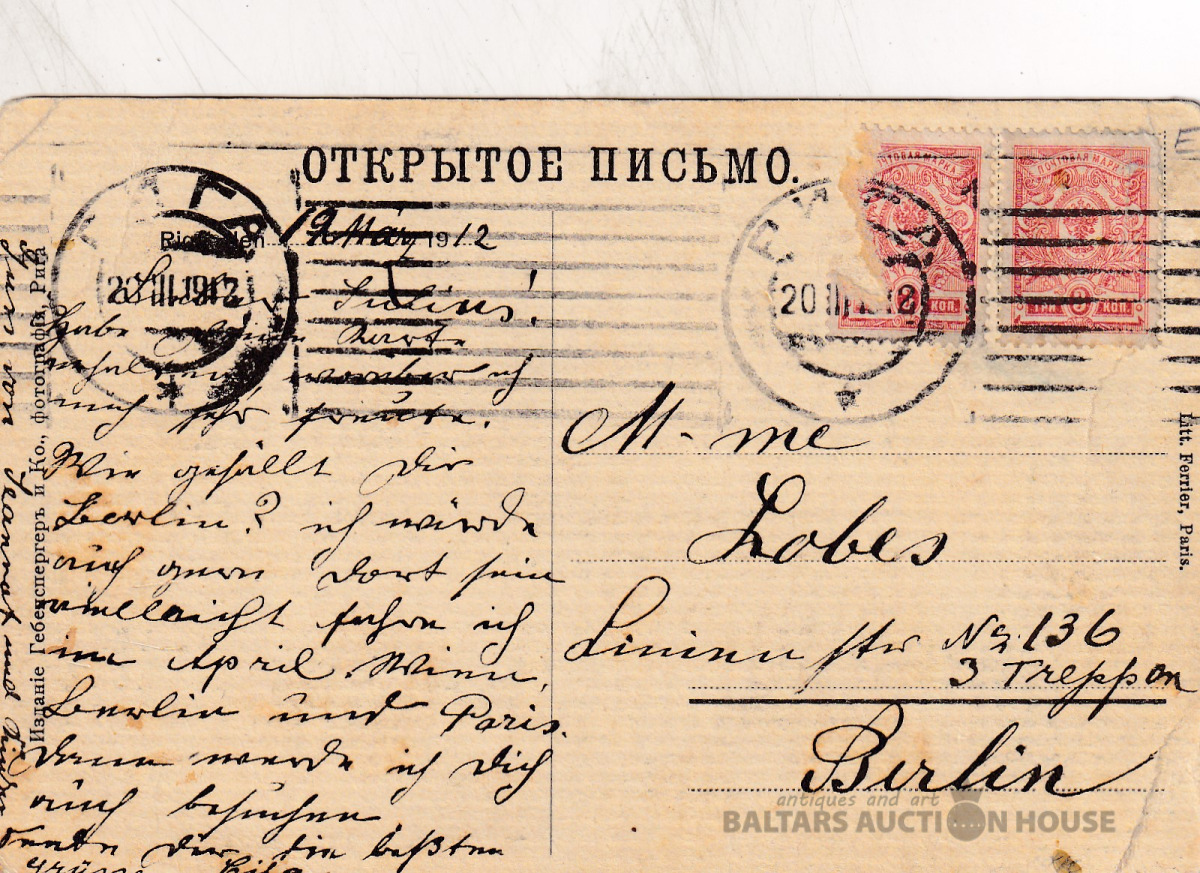 ОТКРЫТОЕ ПИСЬМО.
ПОЧТОВАЯ МАРКА
ПОЧТОВАЯ МАРКА
КОП.
ТРИ 3 КОП.
РИГА
20 III 1912
РИГА
20 III 12
Riga, den 19 März 1912
Julius!
habe Deine Karte
erhalten worüber ich
mich sehr freute.
Wie gefällt Dir
Berlin? ich würde
auch gern dort sein
vielleicht fahre ich
im April. Wien,
Berlin und Paris.
dann werde ich Dich
auch besuchen
die beßten
Grüsse
von Jeannot und
M-me
Lobes
Linien str No. 136
3 Treppen
Berlin
Изданіе Гебенспергеръ и Ко., фотографы, Рига
Litt. Ferrier, Paris.
antiques and art
BALTARS AUCTION HOUSE